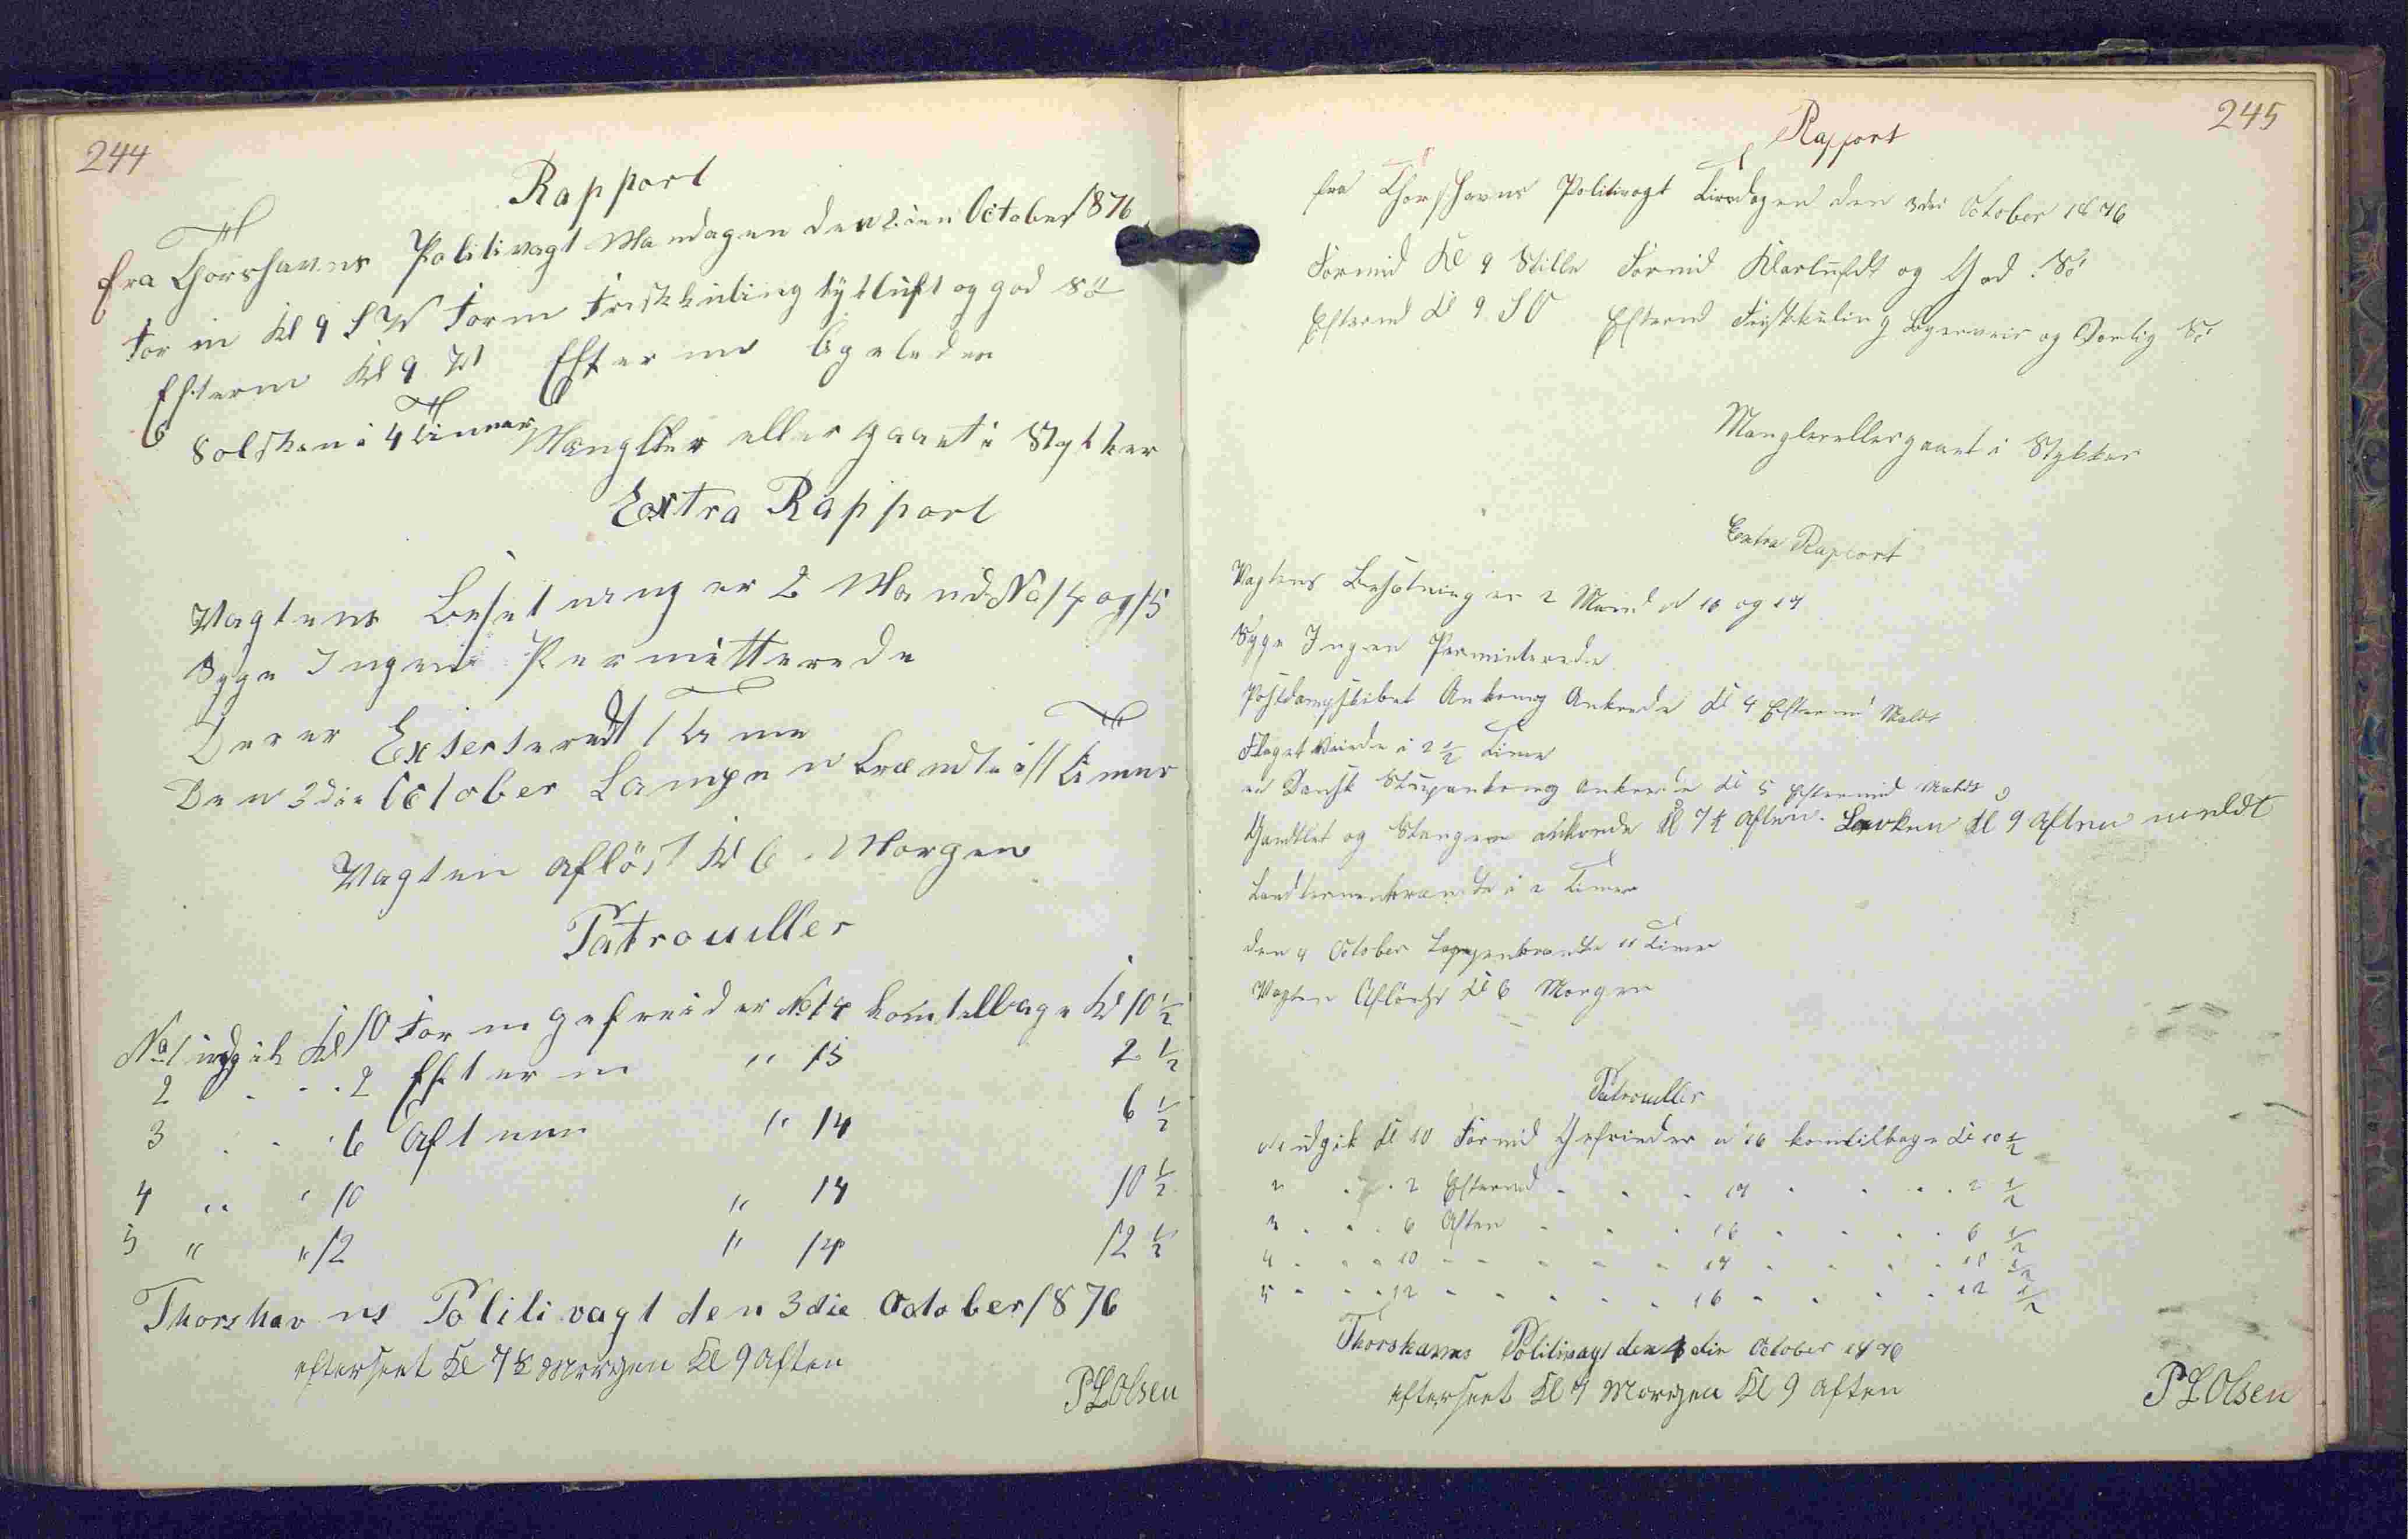 244
Rapport
fra Thorshavns Politivagt Mandagen den 2den October 1876
Form Kl 9 S W Form Friskkuling tykluft og god Sö
Efterm Kl 9 W Efterm ligeleden
Solsken i 4 Timer
Mangller eller gaaet i Stykker
Extra Rapport
Vagtens Besetning er 2 Mand No 14 og 15
Syge Ingen Permitterede
Der er Exserseredt 1 Time
Den 3die October Lampen brændte i 11 Timer
Vagten aflöst Kl 6 Morgen
Patrouiller
No 1 udgik Kl 10 Form gefreider No 14 kom tilbage Kl 10 1/2
2 . . . 2 Efterm " 15 2 1/2
3 . . . 6 Aftenen " 14 6 1/2
4 " " 10 " 14 10 1/2
5 " " 12 " 14 12 1/2
Thorshavns Politivagt den 3die October 1876
efterseet Kl 7 1/2 Morgen Kl 9 Aften
P L Olsen
245
Rapport
fra Thorshavns Politivagt Tirsdagen den 3die October 1876
Formid Kl 9 Stille Formid Klarlufdt og God Sö
Eftermd Kl 9 SO Eftermd Friskkuling Bygeveir og Sö
Mangler eller gaaet i Stykker
Extra Rapport
Vagtens Besätning er 2 Mand N 16 og 17
Syge Ingen Permiterede
Postdampskibet Ankomg Ankrede Kl 4 Eftermd Meldt
Flaget Veiede i 2 1/2 Time
en Dansk Ankrede Kl 5 Eftermid Meldt
og ankrede Kl 7 1/2 Aften. Kl 9 Aften meldt
i 2 Timer
den 4 October Lampenbrandte 11 Timer
Vagten Aflöst Kl 6 Morgen
Patrouller
N 1 udgik Kl 10 Formid Gefrieder N 16 komtilbage Kl 10 1/2
2 . . . 2 Eftermd . . . 17 . . . . 2 1/2
3 . . . 6 Aften . . . 16 . . . . 6 1/2
4 . . . 10 . . . . . 17 . . . . 10 1/2
5 . . . 12 . . . . . 16 . . . . 12 1/2
Thorshavns Politivagt den 4 die October 1876
efterseet Kl 7 Morgen Kl 9 Aften
P L Olsen